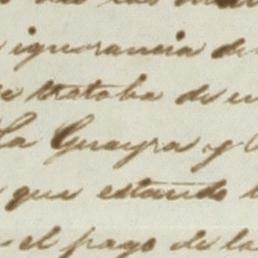 ignorancia de
se trataba de
La Guayra y
que estando
el pago de la